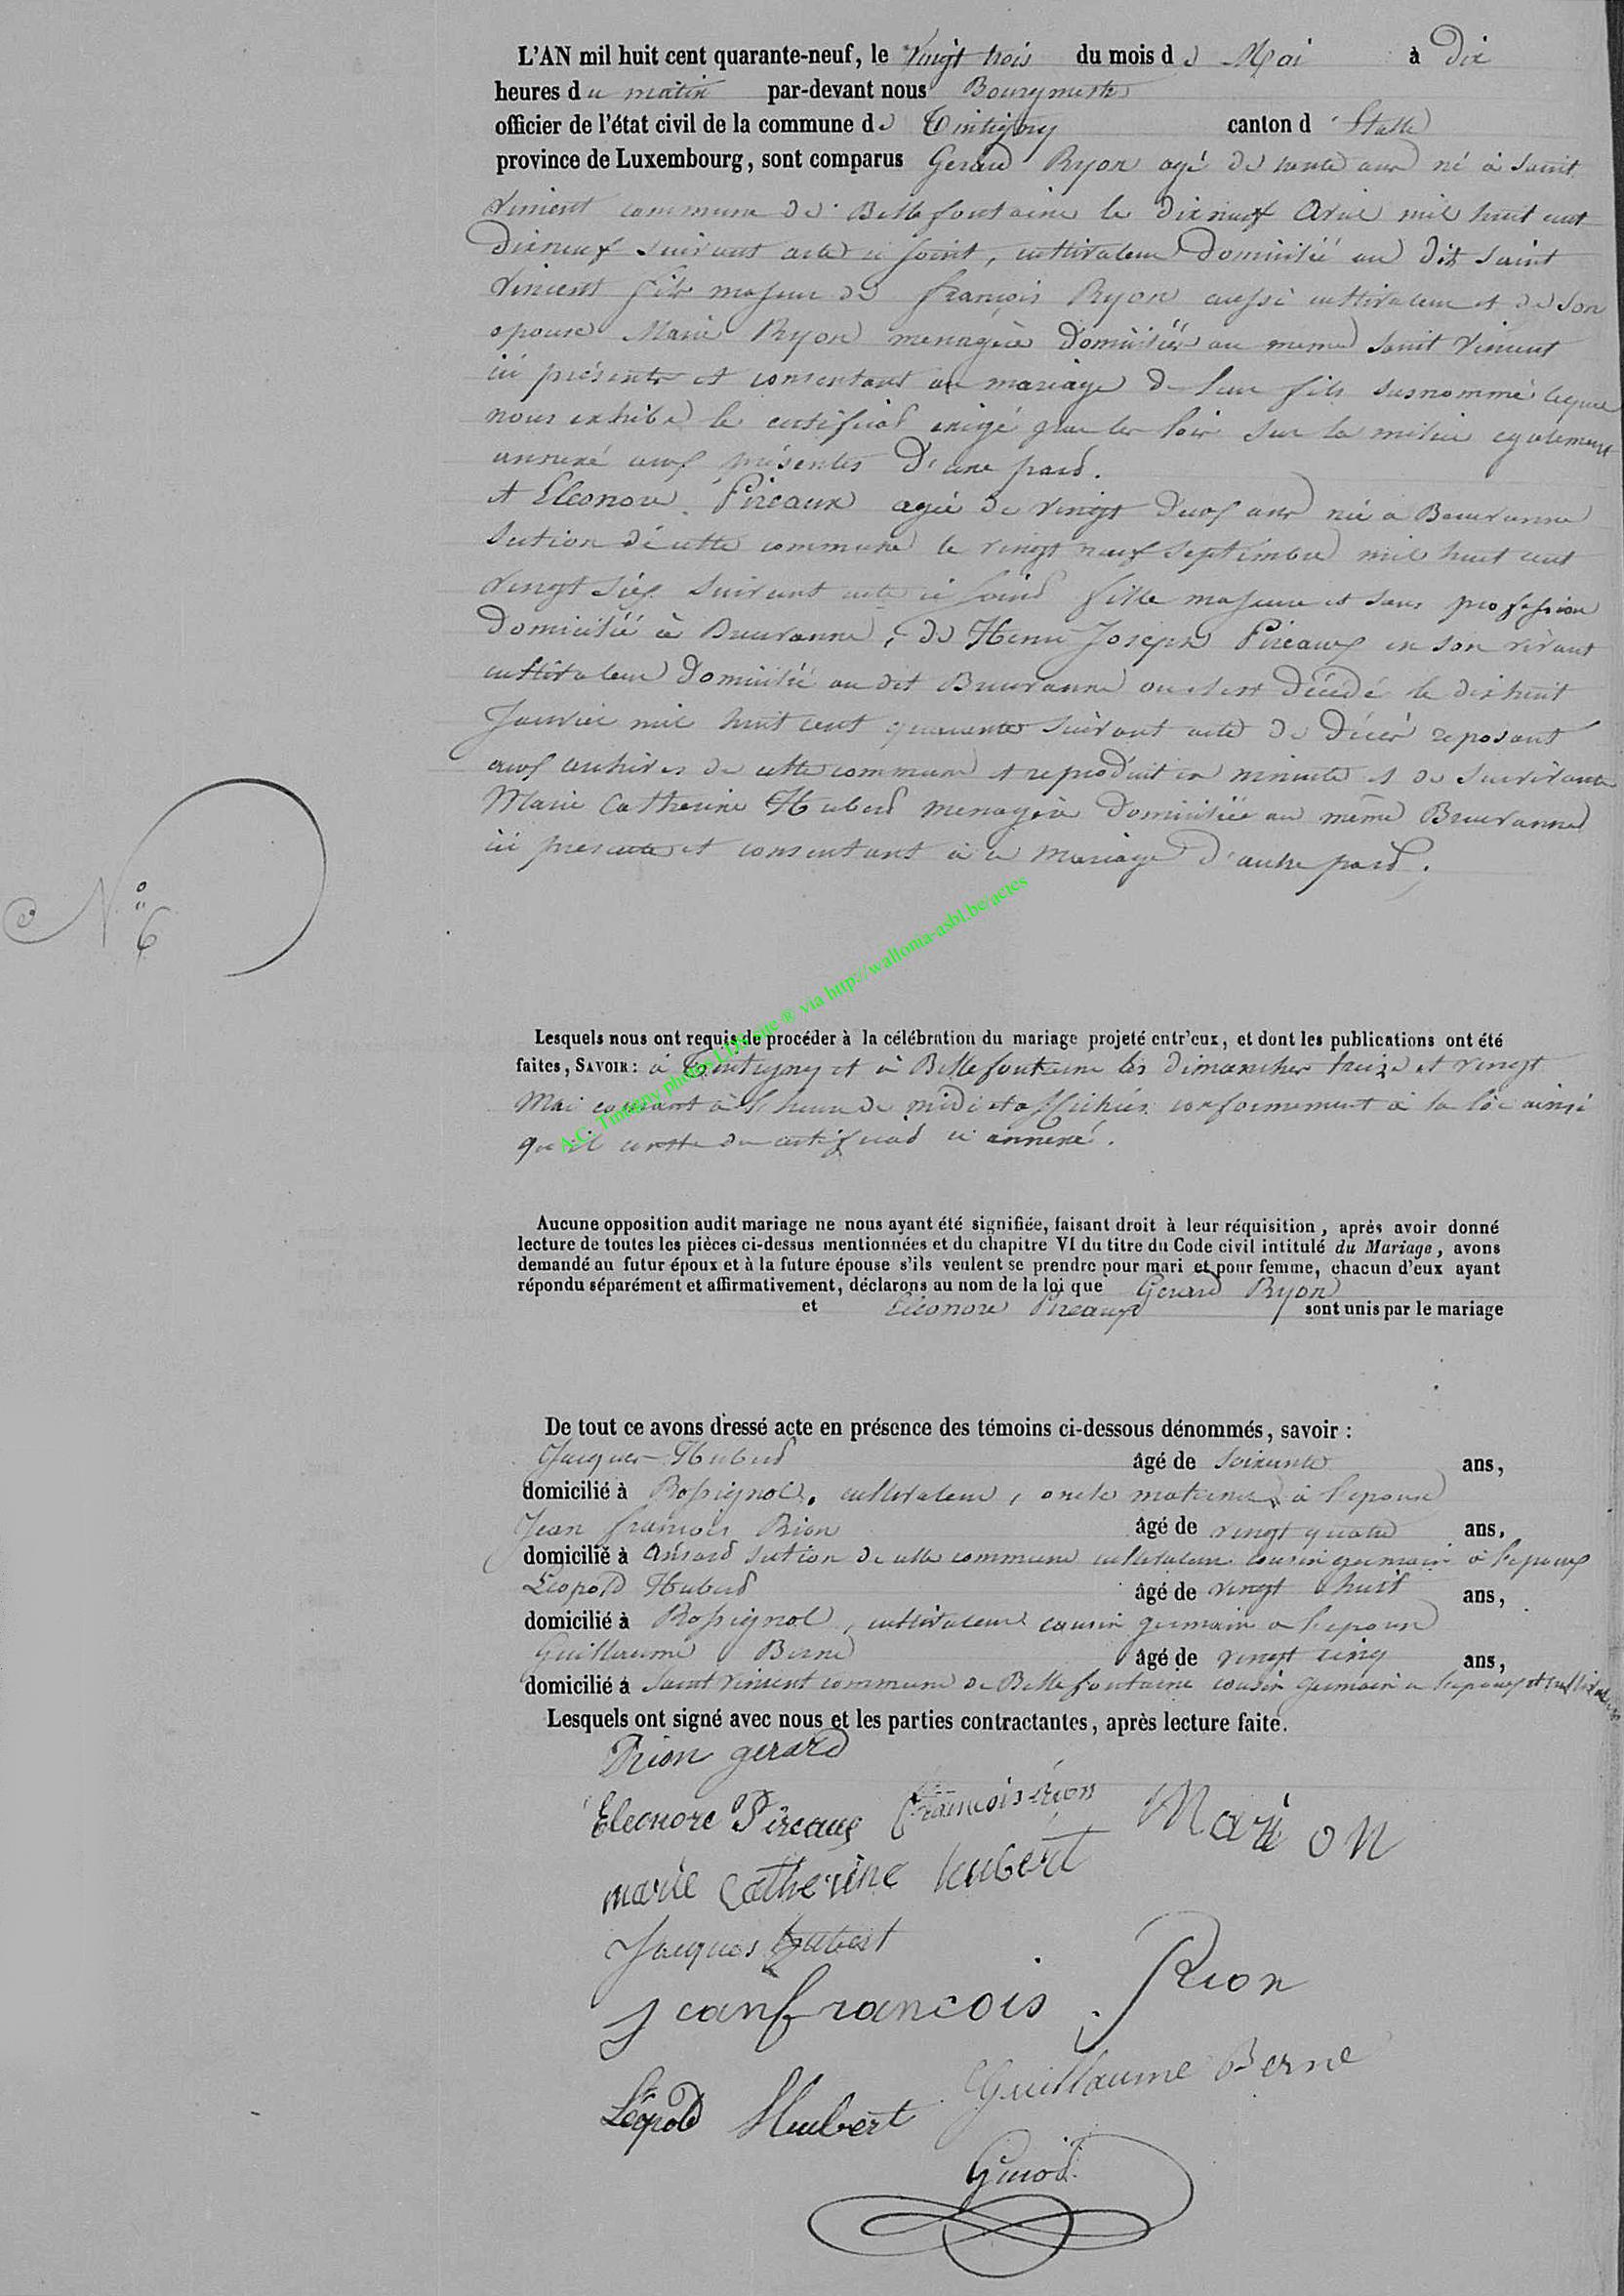 L'AN mil huit cent quarante-neuf, le Vingt trois du mois de Mai à Dix
heures du matin par-devant nous Bourgmestre
officier de l'état civil de la commune de Tintigny canton d'Etalle
province de Luxembourg, sont comparus Gerard Ryon agé de trente ans né à Saint
Vincent commune de Bellefontaine le dix neuf Avril mil huit cent
Dix neuf suivant acte ci joint, cultivateur Domicilié au dit Saint
Vincent fils majeur de françois Ryon aussi cultivateur et de Son
epouse Marie Ryon menagère domiciliés au meme Saint Vincent
ici présents et consentant au mariage de leur fils susnommé lequel
nous exhibe le certificat exigé par les lois sur la milice egalement
annexé aux présentes D'une pard.
et Eleonore Pireaux agée de vingt deux ans née a Breuvanne
Section de cette commune le vingt neuf Septembre mil huit cent
vingt six suivant acte ci joind fille majeure et sans profession
Domiciliée à Breuvanne, de Henri Joseph Pireaux en son vivant
cultivateur Domicilié au dit Breuvanne ou il est Décédé le dix huit
Janvier mil huit cent quarante suivant acte de Décès reposant
aux archives de cette commune et reproduit en minute et de survivante
Marie Catherine Huberd menagère Domiciliée au même Breuvanne
ici presente et consentant à ce mariage d'autre pard.
N° 6
Lesquels nous ont requis de procéder à la célébration du mariage projeté entr'eux, et dont les publications ont été
faites, SAVOIR: à Tintigny et à Bellefontaine les dimanches treize et vingt
Mai courant à l'heure de midi et affichées conformement à la loi ainsi
qu'il conste du certificad ci annexé.
A.C. Tintigny photos LDS site ® via http://wallonia-asbl.be/actes
Aucune opposition audit mariage ne nous ayant été signifiée, faisant droit à leur réquisition, après avoir donné
lecture de toutes les pièces ci-dessus mentionnées et du chapitre VI du titre du Code civil intitulé du Mariage, avons
demandé au futur époux et à la future épouse s'ils veulent se prendre pour mari et pour femme, chacun d'eux ayant
répondu séparément et affirmativement, déclarons au nom de la loi que Gerard Ryon
et Eléonore Pireaux sont unis par le mariage
De tout ce avons dressé acte en présence des témoins ci-dessous dénommés, savoir :
Jacques Huberd âgé de Soixante ans,
domicilié à Rossignol, cultivateur, oncle maternel à l'epouse
Jean françois Rion âgé de vingt quatre ans,
domicilié à Ansard section de cette commune cultivateur cousin germain à l'epoux
Léopold Huberd âgé de vingt huit ans,
domicilié à Rossignol, cultivateur cousin germain a l'epouse
Guillaume Berne âgé de vingt cinq ans,
domicilié à Saint Vincent commune de Bellefontaine cousin germain a l'epoux et cultivateur
Lesquels ont signé avec nous et les parties contractantes, après lecture faite.
Rion gerard
Eleonore Pireaux François rion Mari on
marie Catherine hubért
Jacques hubert
jeanfrancois Rion
Léopold Hubert Guillaume Berne
Guiod